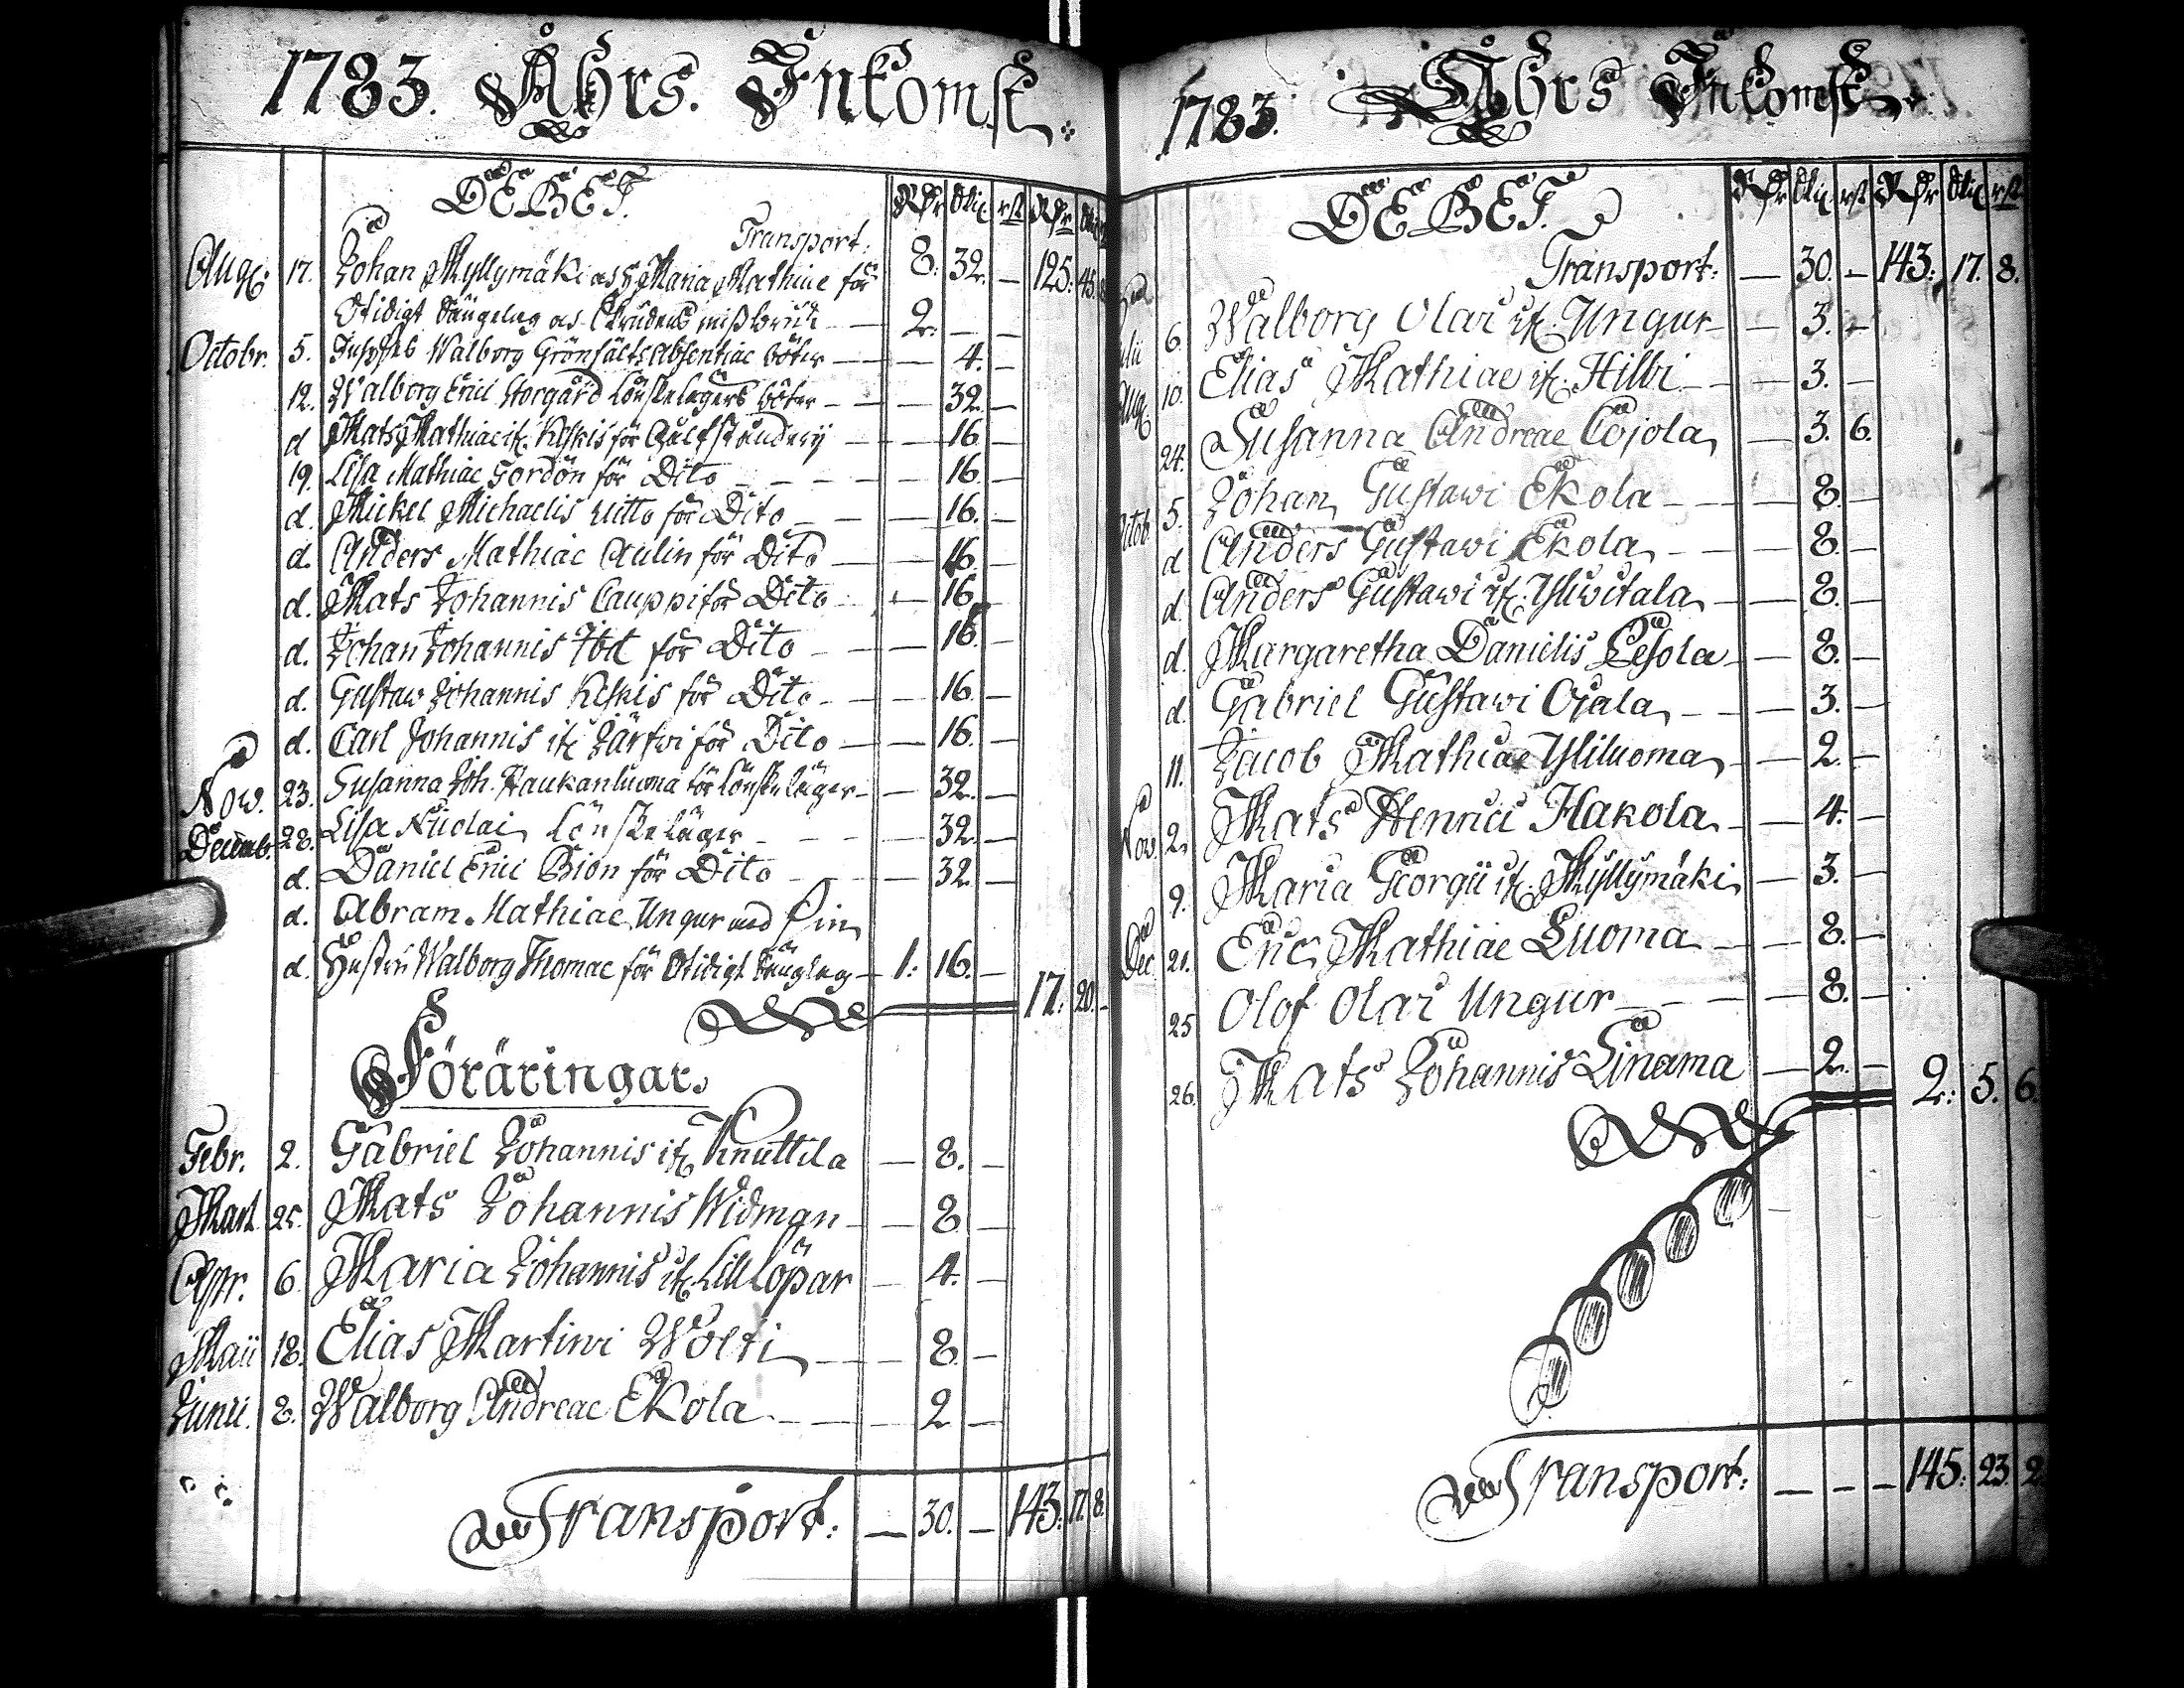 1783. Åhrs. Inkomst.
DEBET. Rdr Skil. rst Rdr Skil
Transport: 8. 32. — 125. 45.
Aug. 17. Johan Myllymäki och Maria Mathiae för
Otidigt Sänglag och Brudens mißbruk — 2. — —
Octobr. 5. Walborg Grönfält Absentiae böter — — 4. —
12. Walborg Erici Storgård Lönskelägers böter — — 32. —
d Mats Mathiae it. Keskis för — — 16. —
19. Lisa Mathiae Gordon för Dito — — 16. —
d. Mickel Michaelis för Dito — — 16. —
d. Anders Mathiae Aulin för Dito — — 16. —
d. Mats Johannis Cauppi för Dito — — 16. —
d. Johan Johannis för Dito — — 16. —
d. Gustaw Johannis Keskis för Dito — — 16. —
d. Carl Johannis it. Järfwi för Dito — — 16. —
Now. 23. Susanna Joh. Haukanluoma för Lönskeläger — — 32. —
Decemb. 28. Lisa Nicolai Lönskeläger — — 32. —
d. Daniel Erici Biön för Dito — — 32 —
d. Abram. Mathiae Ungur med sin
d. Hustru Walborg Thomae för Otidigt Sänglag — 1: 16. — 17. 20. —
Föräringar.
Febr. 2. Gabriel Johannis it. Knuttila — 8. —
Mart. 25. Mats Johannis Widman — — 8 —
Apr. 6. Maria Johannis it. Lill Löpar — 4. —
Maii 18. Elias Martini Wolti — — 8. —
Junii. 8. Walborg Andreae Ekola — — 2 —
Transport: — 30. — 143. 17. 8.
1783. Åhrs Inkomst
DEBET. Rdr Skil. rst Rdr Skil rst
Transport: — 30. — 143. 17. 8.
6. Walborg Olai it. Ungur — — 3. —
10. Elias Mathiae it. Hilbi — — 3. —
Aug. 24. Susanna Andreae Cojola — 3. 6.
Octob. 5. Johan Gustawi Ekola — — 8. —
d Anders Gustawi Ekola — — 8. —
d. Anders Gustawi it. Yliwitala — — 8. —
d. Margaretha Danielis Pesola — — 8. —
d. Gabriel Gustawi Ojala — — 3. —
11. Jacob Mathiae Yliluoma — — 2. —
Nov. 2. Mats Henrici Hakola — — 4. —
9. Maria Georgii it. Myllymäki — 3. —
Dec. 21. Eric Mathiae Luoma — — 8. —
25 Olof Olai Ungur — — 8. —
26. Mats Johannis Linama — 2. — 2. 5. 6.
Transport: — — — 145. 23. 2.